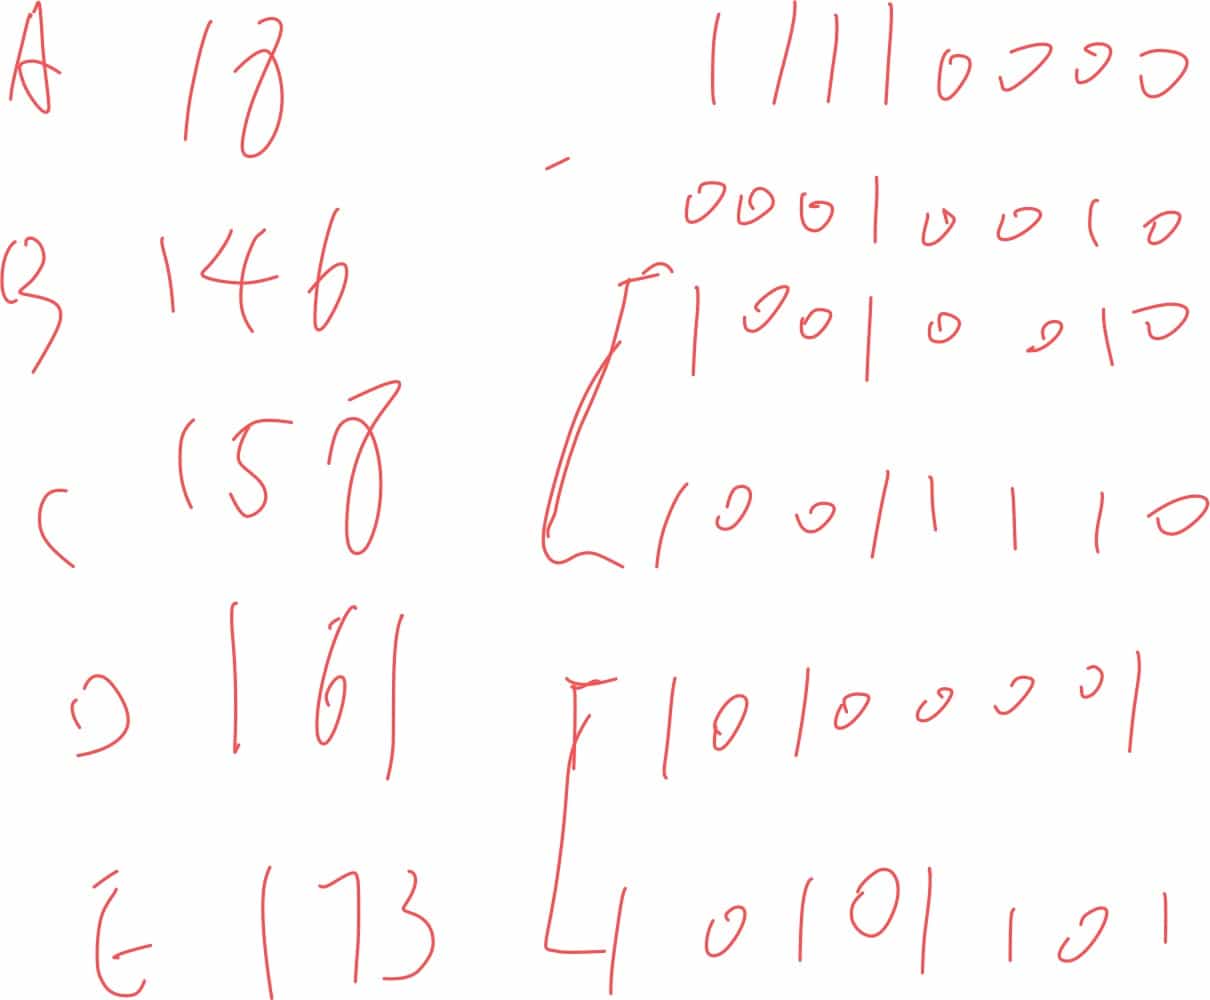 A 18 11110000
00010010
B 146 10010010
C 158 10011110
D 161 10100001
E 173 10101101